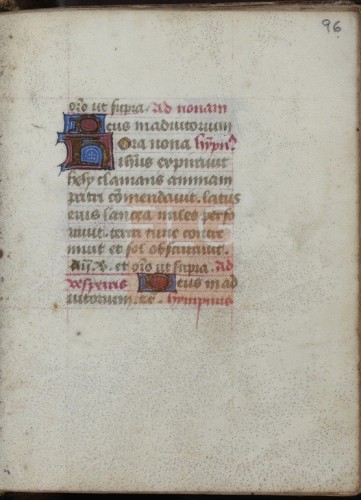 96
oro ut supra. Ad nonam
Deus in adiutorium
Hora nona hympn9
ihesus expiravit
hely clamans animam
patri comendauit. latus
eius lancea miles perfo
rauit. terra tunc contre
muit et sol obscurauit.
et oro ut supra. ad
vesperas Deus in ad
iutorium. hympnus